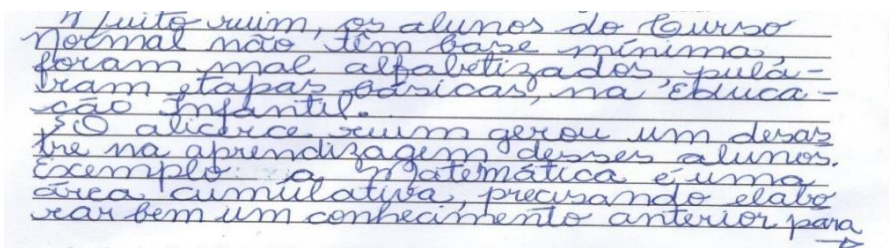 Muito ruim, os alunos do Curso
Normal não têm base mínima,
foram mal alfabetizados, pulá-
ram etapas básicas, na Educa-
ção Infantil.
O alicerce ruim gerou um desas
tre na aprendizagem desses alunos.
Exemplo: a Matemática é uma
área cumulativa, precisando elabo
rar bem um conhecimento anterior para
→